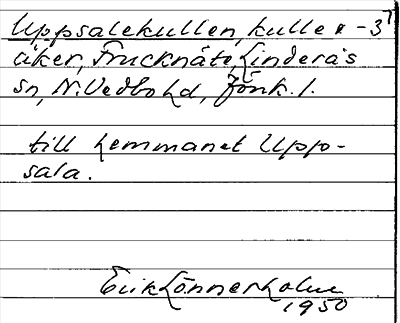 Uppsalekullen, kulle -3
åker, Frucknäte, Linderås
sn, N. Vedbo hd, Jönk. l.
till hemmanet Upp-
sala.
Erik Lönnerholm
1950